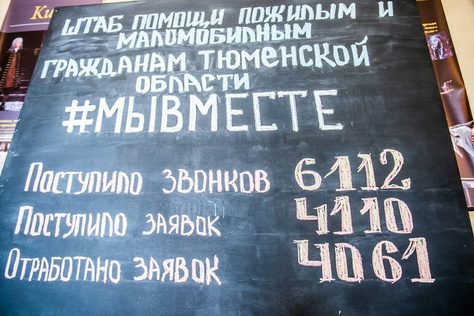 Ки
ШТАБ ПОМОЩИ ПОЖИЛЫМ И
МАЛОМОБИЛЬНЫМ
ГРАЖДАНАМ ТЮМЕНСКОЙ
ОБЛАСТИ
#МЫВМЕСТЕ
ПОСТУПИЛО ЗВОНКОВ 6112
ПОСТУПИЛО ЗАЯВОК 4110
ОТРАБОТАНО ЗАЯВОК 4061